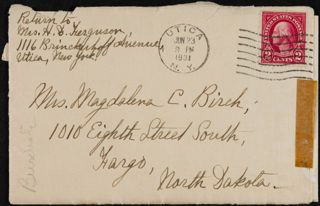 Return to
Mrs. H. D. Ferguson
1116 Brinckerhoff Avenue
Utica, New York
UTICA
JUN 23
8 PM
1931
N.Y.
2 CENTS 2
Mrs. Magdalena C. Birch,
1010 Eighth Street South,
Fargo,
North Dakota.